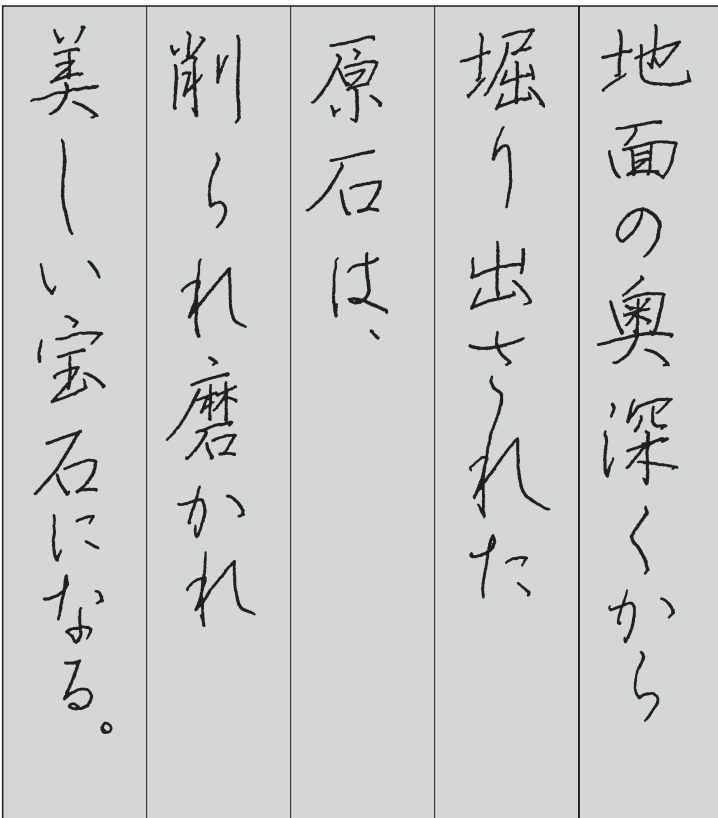 地面の奥深くから
堀り出された
原石は、
削られ磨かれ
美しい宝石になる。